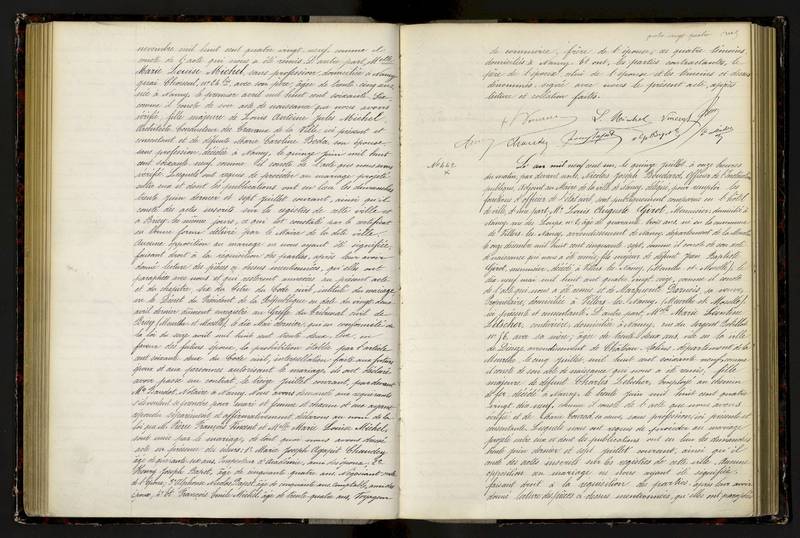 novembre mil huit cent quatre vingt neuf comme il
conste de l'acte qui nous a été remis. D'autre part, Melle
Marie Louise Michel, sans profession, domiciliée à Nancy
quai Choiseul, avec son père, âgée de
née à Nancy, le premier avril mil huit cent soixante
comme il conste de son acte de naissance que nous avons
vérifié, fille majeure de Louis Antoine Jules Michel
Architecte Conducteur des Travaux de la Ville, ici présent et
consentant et de défunte Marie Caroline son épouse
sans profession, décédée à Nancy, le quinze juin mil huit
cent soixante neuf, comme il conste de l'acte que nous avons
vérifié. Lesquels ont requis de procéder au mariage projeté
entre eux et dont les publications ont eu lieu les dimanches
trente juin dernier et sept juillet courant, ainsi qu'il
conste des actes inscrits sur les registres de cette ville et
à Briey les mêmes jours, ce qui est constaté par le certificat
en bonne forme délivré par le Maire de la dite ville.
Aucune opposition au mariage ne nous ayant été signifiée,
faisant droit à la réquisition des parties, après leur avoir
donné lecture des pièces ci dessus mentionnées, qu'elles ont
paraphées avec nous et qui resteront annexées au présent acte
et du chapitre six du titre du Code civil, intitulé du mariage
vu le Décret du Président de la République en date du vingt deux
avril dernier dûment enregistré au Greffe du Tribunal civil de
Briey (Meurthe et Moselle), le dix Mai dernier, qui en conformité de
la loi du seize avril mil huit cent trente deux, lève en
faveur des futurs époux, la prohibition établie par l'article
cent soixante deux du Code civil, interpellation faite aux futurs
époux et aux personnes autorisant le mariage, ils ont déclaré
avoir passé un contrat, le treize juillet courant, par devant
Me Notaire à Nancy. Nous avons demandé aux requérants
s'ils veulent se prendre pour mari et femme et chacun d'eux ayant
répondu séparément et affirmativement déclarons au nom de la
loi que M. Pierre François Vincent et Melle Marie Louise Michel,
sont unis par le mariage, de tout quoi nous avons dressé
acte en présence des sieurs: 1° Marie Joseph Agapit Chaudey
âgé de quarante six ans, Inspecteur d'Académie, ami des époux, 2°
Henry Joseph âgé de cinquante quatre ans, Négociant
3° Alphonse Nicolas âgé de cinquante ans, comptable, ami des
époux, et 4° François Emile Michel, âgé de trente quatre ans, Voyageur
quatre vingt quatre
de commerce, frère de l'épouse; ces quatre témoins
domiciliés à Nancy. Et ont, les parties contractantes, le
père de l'épouse, celui de l'épouse et les témoins ci dessus
dénommés, signé avec nous le présent acte, après
lecture et collation faites.
L. Michel Vincent
Chaudey
No 442
L'an mil neuf cent un, le quinze juillet à onze heures
du matin, par devant nous, Nicolas Joseph Boudard, Officier de l'Instruction
publique, Adjoint au Maire de la ville de Nancy, délégué pour remplir les
fonctions d'officier de l'état civil, sont publiquement comparus en l'hôtel
de ville, d'une part, Mr Louis Auguste Girot, Menuisier, domicilié à
Nancy, rue de âgé de quarante trois ans, né en la commune
de Villers-lès-Nancy, arrondissement de Nancy, département de la Meurthe
le onze décembre mil huit cent cinquante sept, comme il conste de son acte
de naissance qui nous a été remis, fils majeur de défunt Jean Baptiste
Girot, menuisier, décédé à Villers-lès-Nancy, (Meurthe et Moselle), le
dix neuf mai mil huit cent quatre vingt comme il conste
de l'acte qui nous a été remis et de Marguerite sa veuve,
Propriétaire, domiciliée à Villers-lès-Nancy, (Meurthe et Moselle),
ici présente et consentante. D'autre part, Melle Marie Léontine
Letscher, couturière, domiciliée à Nancy, rue du Sergent Blandan
No 78, avec sa mère, âgée de trente deux ans, née en la ville
de Dieuze, arrondissement de Château-Salins, département de la
Meurthe, le cinq juillet mil huit cent soixante neuf, comme
il conste de son acte de naissance qui nous a été remis, fille
majeure de défunt Charles Letscher, employé au chemin
de fer, décédé à Nancy, le trente juin mil huit cent quatre
vingt dix neuf, comme il conste de l'acte que nous avons
vérifié et de sa veuve, sans profession, ici présente et
consentante. Lesquels nous ont requis de procéder au mariage
projeté entre eux et dont les publications ont eu lieu les dimanches
trente juin dernier et sept juillet courant, ainsi qu'il
conste des actes inscrits sur les registres de cette ville. Aucune
opposition au mariage ne nous ayant été signifiée,
faisant droit à la réquisition des parties, après leur avoir
donné lecture des pièces ci dessus mentionnées, qu'elles ont paraphées